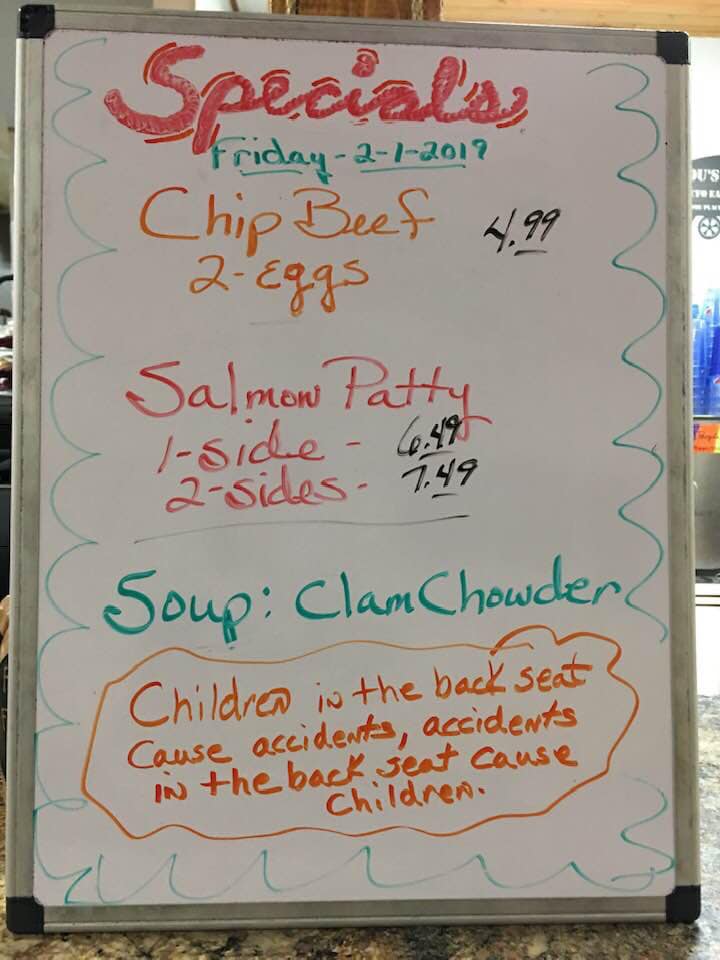 Specials
Friday - 2-1-2019
Chip Beef 4.99
2-Eggs
Salmon Patty
1-side - 6.49
2-sides - 7.49
Soup: Clam Chowder
Children in the back seat
cause accidents, accidents
in the back seat cause
children.